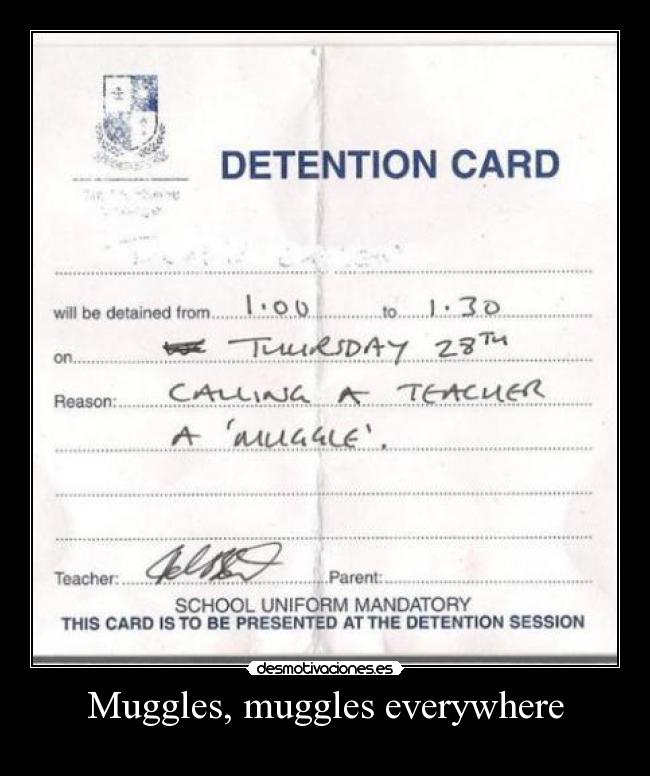 DETENTION CARD
will be detained from 1.00 to 1.30
on THURSDAY 28TH
Reason: CALLING A TEACHER
A 'MUGGLE'.
Teacher: Parent:
SCHOOL UNIFORM MANDATORY
THIS CARD IS TO BE PRESENTED AT THE DETENTION SESSION
desmotivaciones.es
Muggles, muggles everywhere